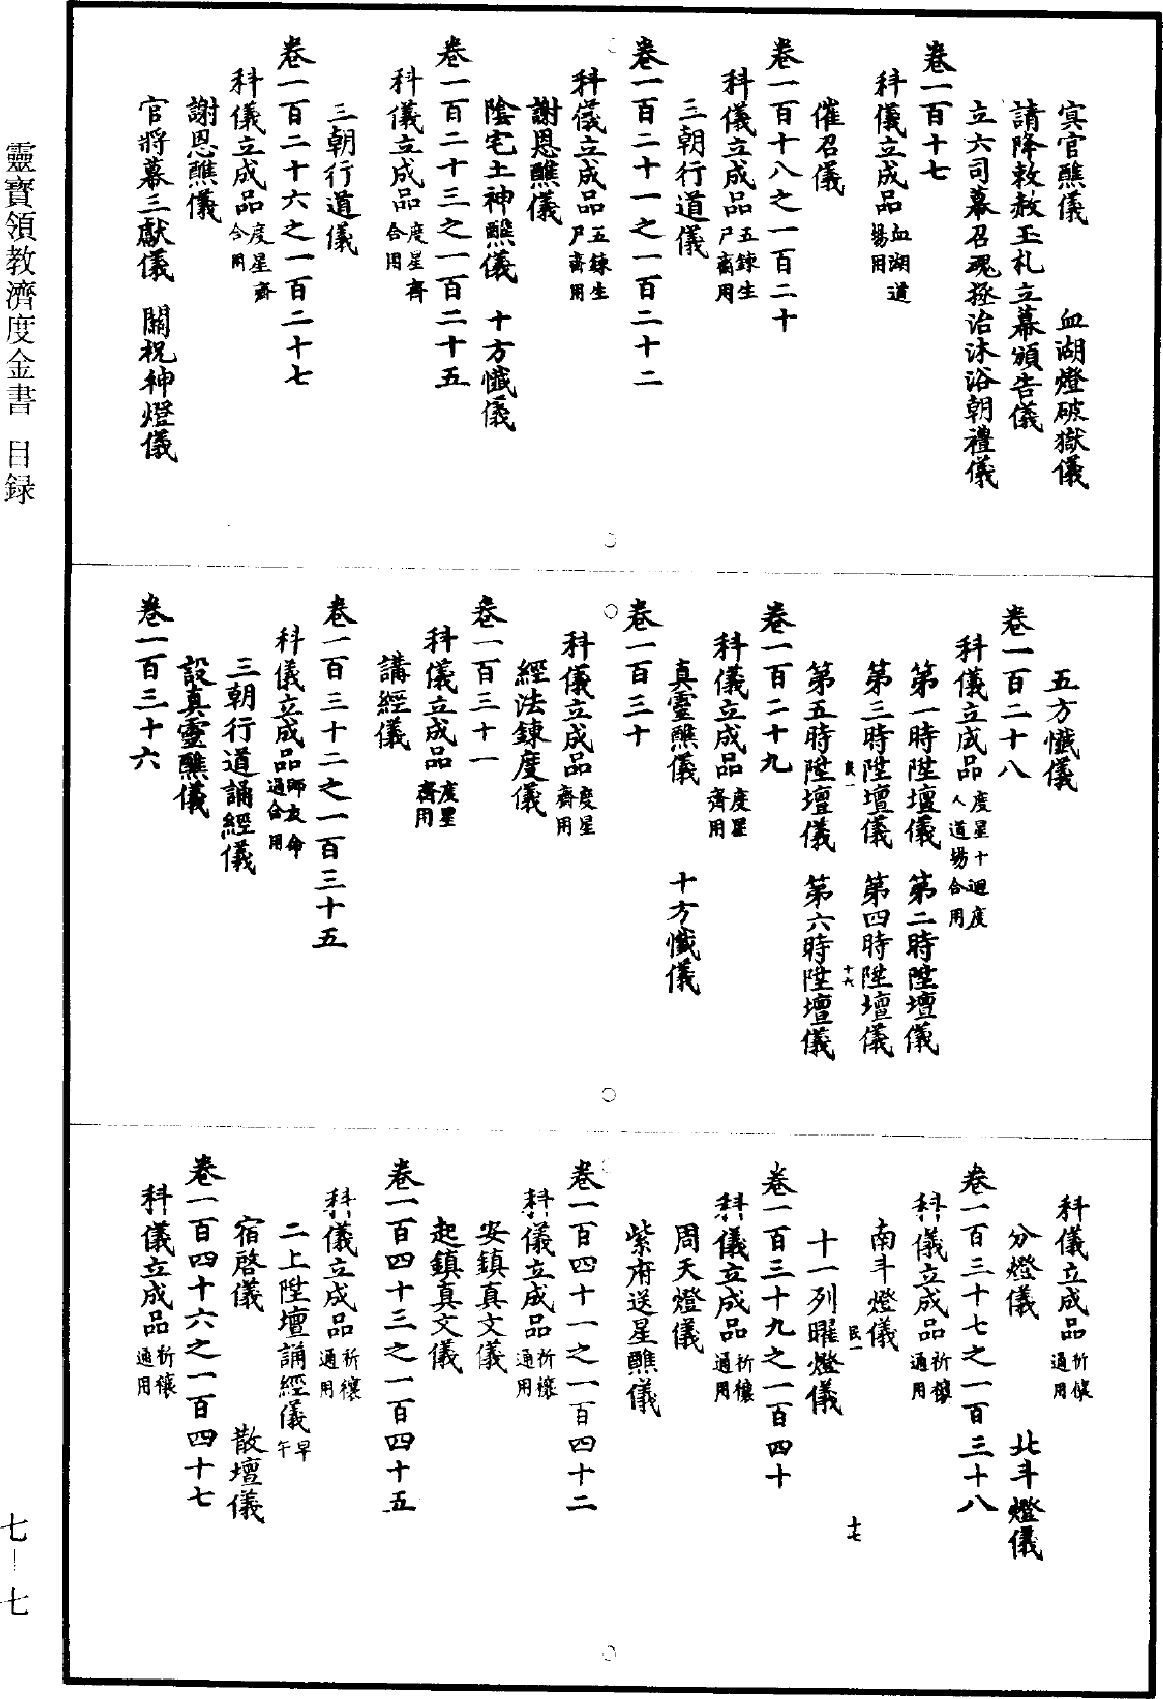 冥官醮儀　血湖燈破獄儀
請降敕赦玉札立幕頒告儀
立六司幕召魂拯治沐浴朝禮儀
卷一百十七
科儀立成品血湖道場用
催召儀
卷一百十八之一百二十
科儀立成品五鍊生尸齋用
三朝行道儀
卷一百二十一之一百二十二
科儀立成品五鍊生尸齋用
謝恩醮儀
陰宅土神醮儀　十方懺儀
卷一百二十三之一百二十五
科儀立成品度星齊合用
三朝行道儀
卷一百二十六之一百二十七
科儀立成品度星齊合用
謝恩醮儀
官將幕三獻儀　關祝神燈儀
五方懺儀
卷一百二十八
科儀立成品度星十迴度人道場合用
第一時陞壇儀　第二時陞壇儀
第三時陞壇儀　第四時陞壇儀
民一　十六
第五時陞壇儀　第六時陞壇儀
卷一百二十九
科儀立成品度星齊用
真靈醮儀　十方懺儀
卷一百三十
科儀立成品度星齊用
經法鍊度儀
卷一百三十一
科儀立成品度星齊用
講經儀
卷一百三十二之一百三十五
科儀立成品師友命過合用
三朝行道誦經儀
設真靈醮儀
卷一百三十六
科儀立成品祈禳通用
分燈儀　北斗燈儀
卷一百三十七之一百三十八
科儀立成品祈禳通用
南斗燈儀
民一　十七
十一列曜燈儀
卷一百三十九之一百四十
科儀立成品祈禳通用
周天燈儀
紫府送星醮儀
卷一百四十一之一百四十二
科儀立成品祈禳通用
安鎮真文儀
起鎮真文儀
卷一百四十三之一百四十五
科儀立成品祈禳通用
二上陞壇誦經儀早午
宿啓儀　散壇儀
卷一百四十六之一百四十七
科儀立成品祈禳通用
靈寶領教濟度金書　目録
七—七